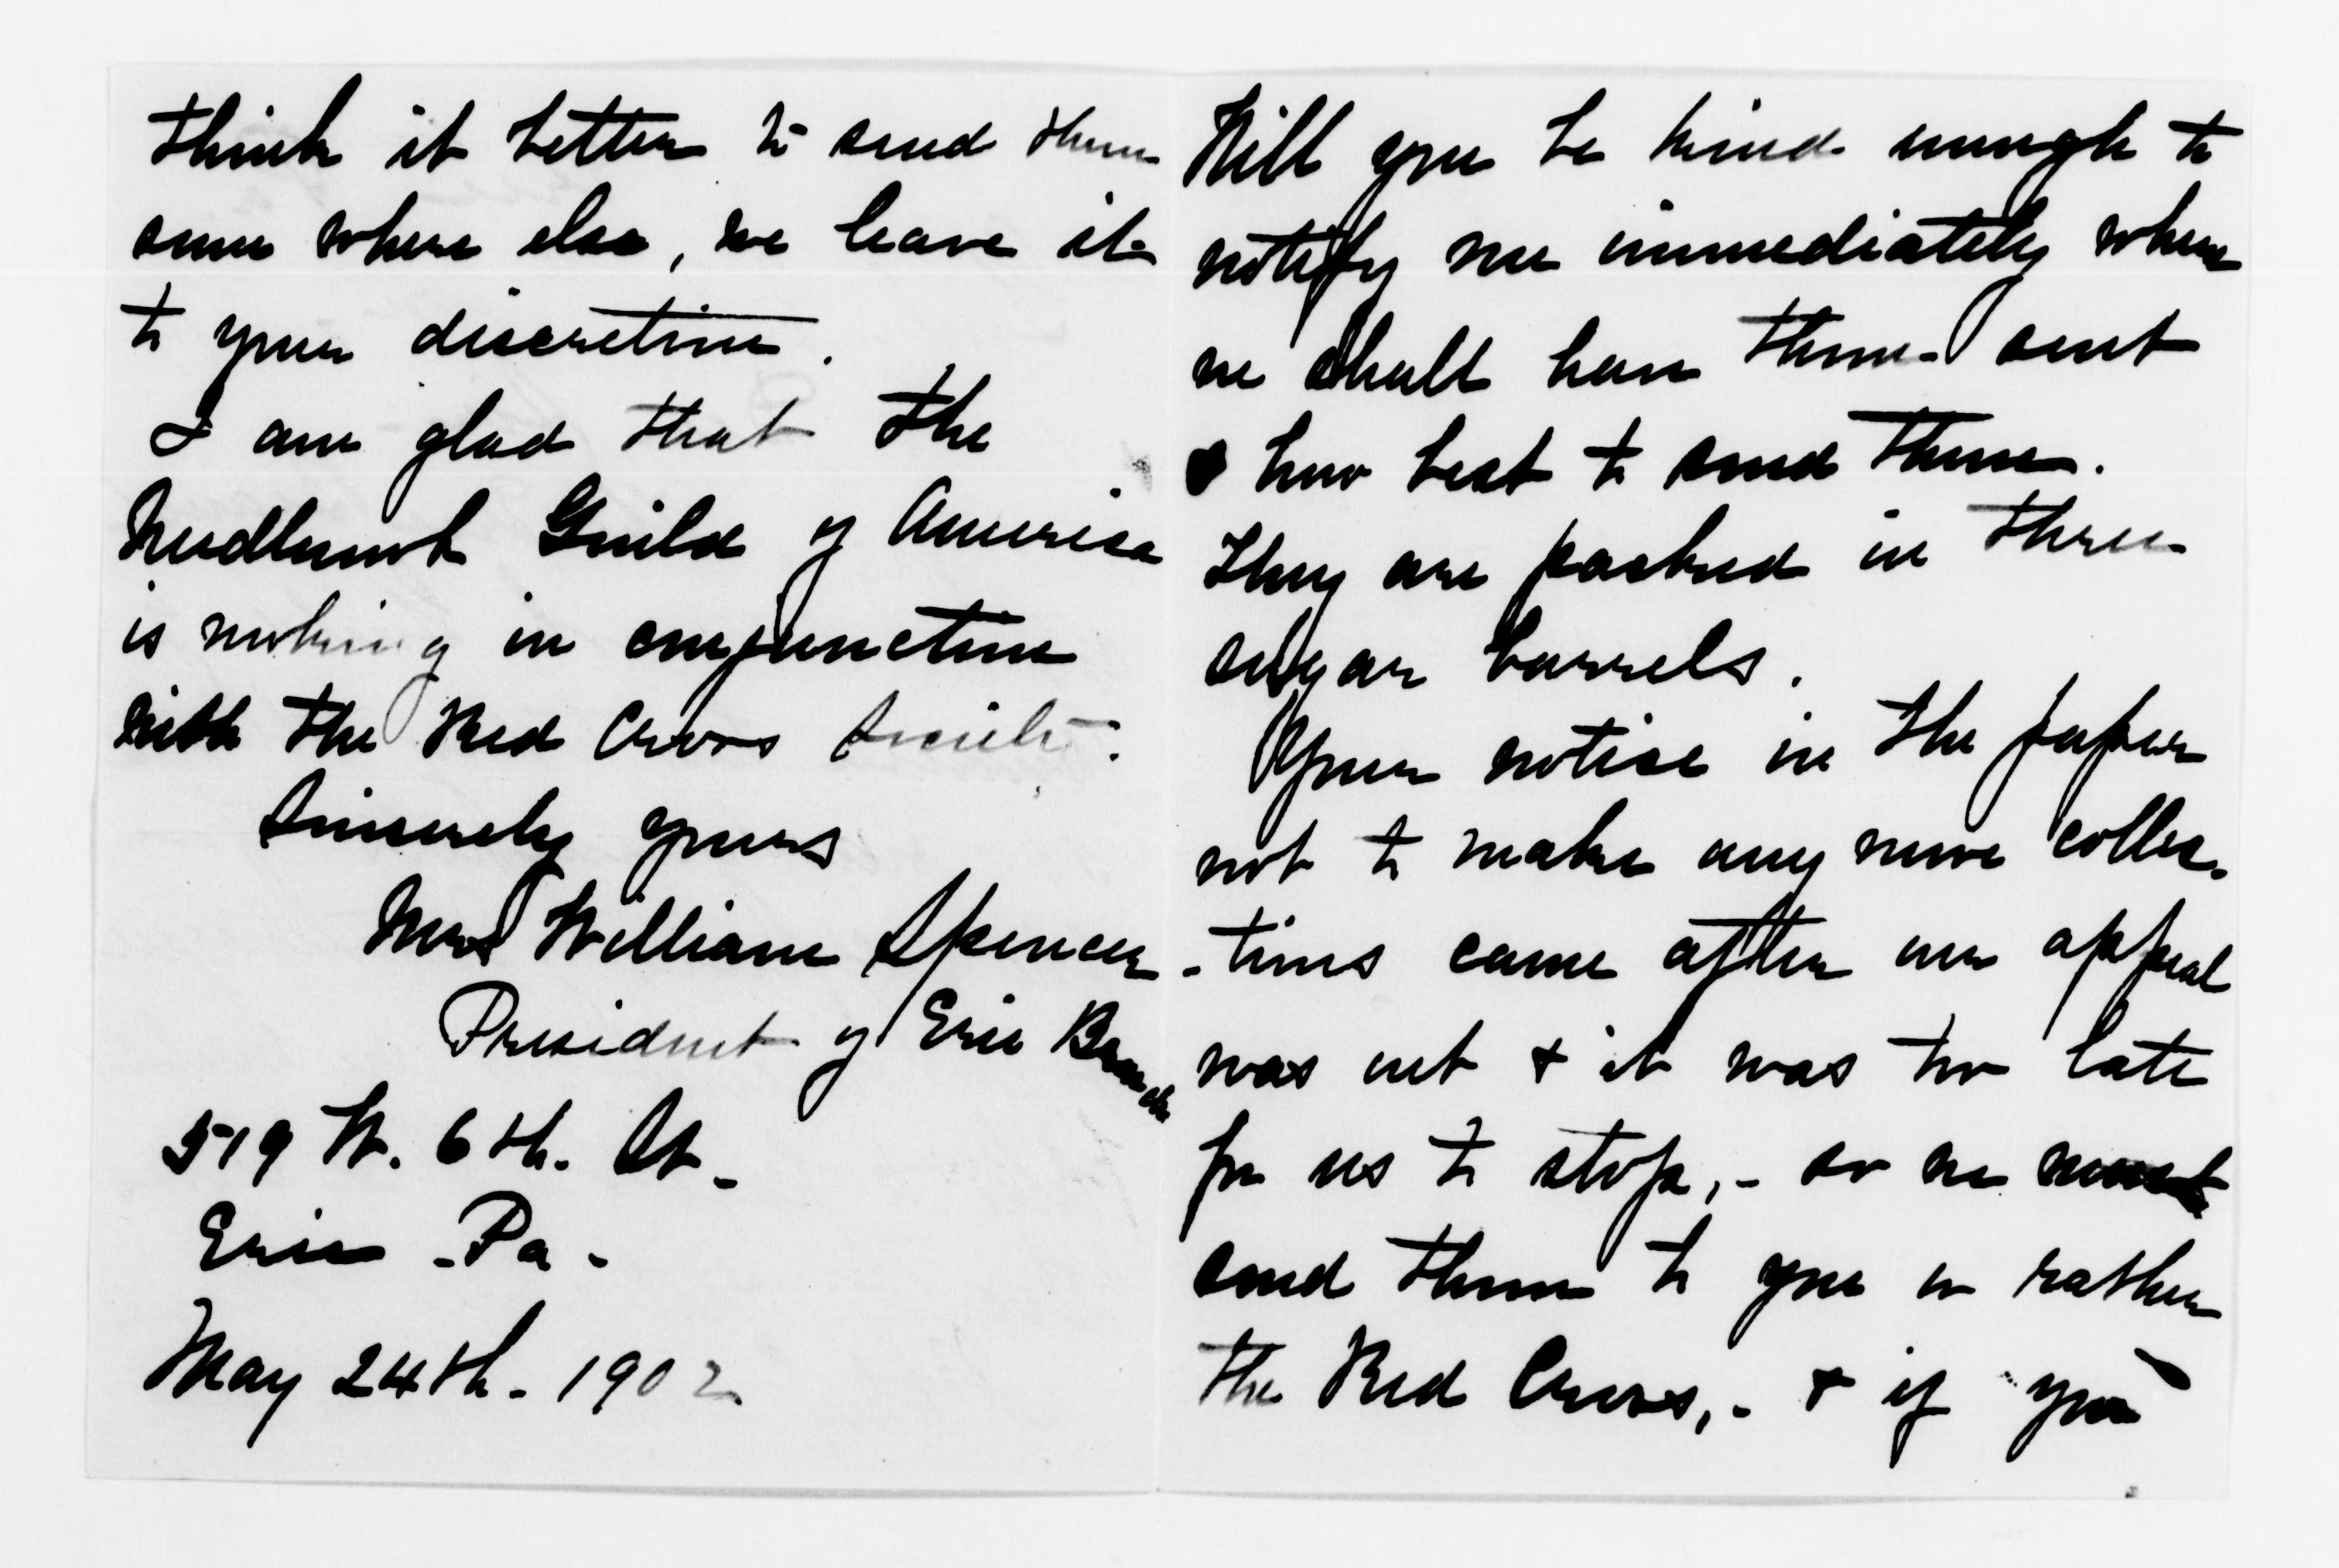 Will you be kind enough to
notify me immediately where
we shall have them sent
how best to send them.
They are packed in three
sugar barrels.
Your notice in the paper
not to make any more collec-
-tions came after our appeal
was out & it was too late
for us to stop,- so we must
send them to you or rather
the Red Cross,- & if you
think it better to send them
some where else, we leave it
to your discretion.
I am glad that the
Needlework Guild of America
is working in conjunction
with the Red Cross Society.
Sincerely yours
Mrs William Spencer
President of Erie Branch
519 W. 6th. St-
Erie -Pa-
May 24th- 1902